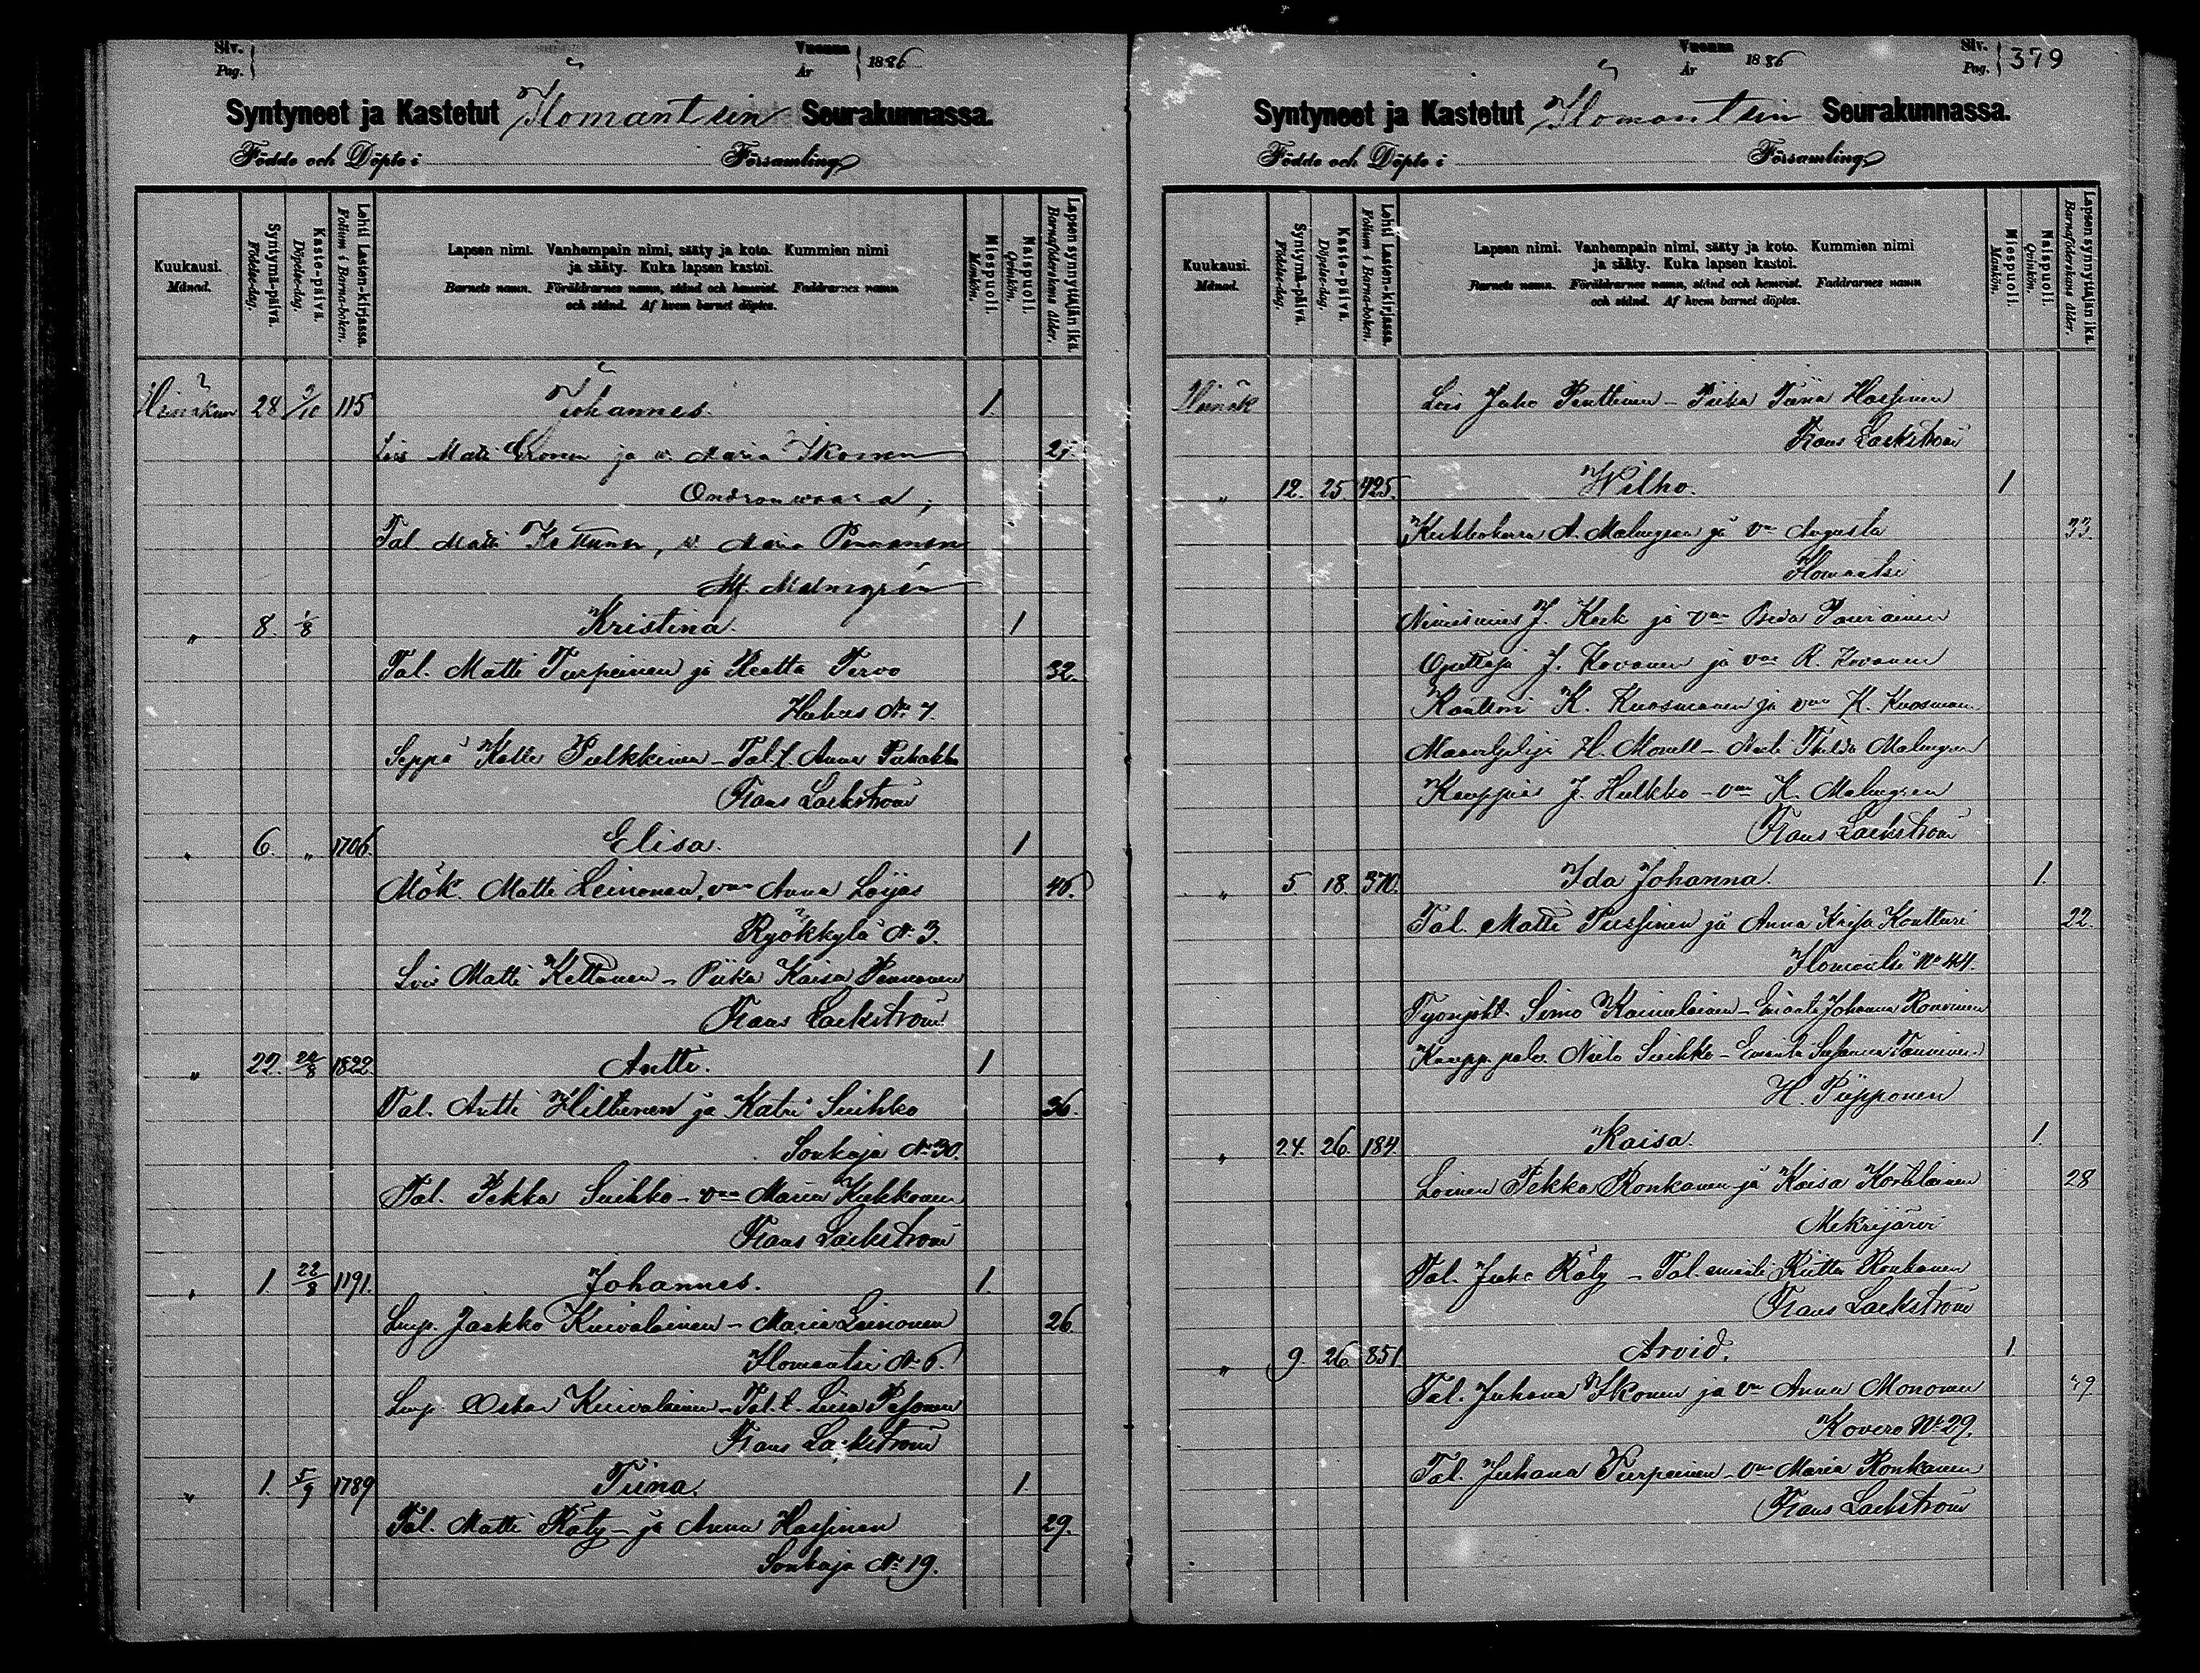 Siv. Pag.
Vuonna År 1886
Syntyneet ja Kastetut Ilomantsin Seurakunnassa.
Födde och Döpte i Församling
Kuukausi. Månad.
Syntymä-päivä. Födelse-dag.
Kaste-päivä. Döpelse-dag.
Lehti Lasten-kirjassa. Folium i Barna-boken.
Lapsen nimi. Vanhempain nimi, sääty ja koto. Kummien nimi
ja sääty. Kuka lapsen kastoi.
Barnets namn. Föräldrarnes namn, stånd och hemvist. Faddrarnes namn
och stånd. Af hvem barnet döptes.
Miespuoli. Mankön.
Naispuoli. Qvinkön.
Lapsen synnyttäjän ikä. Barnaföderskans ålder.
Heinäkuu 28 3/10 115 Johannes. 1.
Lois Matti Eronen ja v. Maria Ikonen
Ondronwaara,
Tal. Matti Kettunen, v. Maria Pennanen
Malmgrén
" 8. 1/8 Kristina. 1
Tal. Matti Turpeinen ja Reetta Tervo 32.
Huhus No 7.
Seppä Kalle Pulkkinen - Tal. t. Anna Puhakka
Frans Lackström
" 6. " 1706. Elisa. 1
Mök. Matti Leinonen, vmo Anna Loijas 46.
Ryökkylä No 3.
Lois Matti Kettunen - Piika Kaisa Pennanen
Frans Lackström
" 22. 22/8 1822. Antti. 1
Tal. Antti Hiltunen ja Katri Suihko 36.
Sonkaja No 30.
Tal. Pekka Suihko - vmo Maria Kukkonen
Frans Lackström
" 1. 22/8 1191. Johannes. 1.
Lmp. Jaakko Kuivalainen - Maria Leinonen 26.
Ilomantsi No 6.
Lmp. Oskar Kuivalainen - Tal. t. Liisa Pesonen
Frans Lackström
" 1. 5/9 1789 Tiina. 1.
Tal. Matti Räty - ja Anna Hassinen 29.
Sonkaja No 19.
Vuonna År 1886
Siv. Pag. 379
Syntyneet ja Kastetut Ilomantsin Seurakunnassa.
Födde och Döpte i Församling
Kuukausi. Månad.
Syntymä-päivä. Födelse-dag.
Kaste-päivä. Döpelse-dag.
Lehti Lasten-kirjassa. Folium i Barna-boken.
Lapsen nimi. Vanhempain nimi, sääty ja koto. Kummien nimi
ja sääty. Kuka lapsen kastoi.
Barnets namn. Föräldrarnes namn, stånd och hemvist. Faddrarnes namn
och stånd. Af hvem barnet döptes.
Miespuoli. Mankön.
Naispuoli. Qvinkön.
Lapsen synnyttäjän ikä. Barnaföderskans ålder.
Heinäk Lois Juho Penttinen - Piika Tiina Hassinen
Frans Lackström
" 12. 25. 425. Wilho. 1
Kirkkoherra A. Malmgren ja vmo Augusta 33.
Ilomantsi
Nimismies J. Keck ja vmo Beda
Opettaja J. Kovanen ja vmo R. Kovanen
Kanttori K. Kuosmanen ja vmo K. Kuosman
Maanviljelijä H. Morell - Malmgren
Kauppias J. Hulkko - vmo K. Malmgren
Frans Lackström
" 5 18. 370. Ida Johanna. 1.
Tal. Matti Pussinen ja Anna Kaisa Kontturi 22.
Ilomantsi No 44.
Työnjoht. Simo Kainulainen - Emäntä Johanna Ronkainen
Kaupp. palv. Niilo Suihko - Emäntä Susanna
H. Piipponen
" 24. 26. 184. Kaisa. 1.
Loinen Pekka Ronkanen ja Kaisa Kortelainen 28
Mekrijärvi
Tal. Juho Räty - Tal. emäntä Riitta Ronkanen
Frans Lackström
" 9. 26. 851. Arvid. 1
Tal. Juhana Ikonen ja vmo Anna Mononen
Kovero No 29.
Tal. Juhana Turpeinen - vmo Maria Ronkanen
Frans Lackström